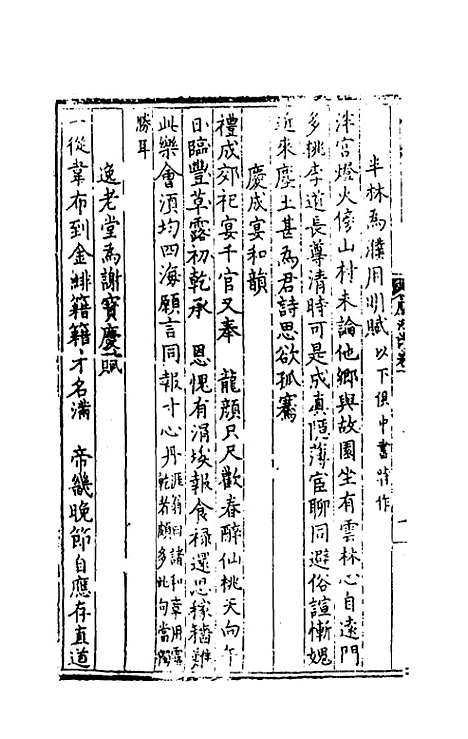 半林為濮用明賦 以下俱中書時作
泮宮燈火傍山村未論他鄉與故園坐有雲林心自遠門
多桃李道長尊清時可是成真隱薄宦聊同避俗諠慚媿
近來塵土甚為君詩思欲孤騫
慶成宴和韻
禮成郊祀宴千官又奉 龍顏只尺歡春醉仙桃天向午
日臨豐草露初乾承 恩愧有涓埃報食祿還思稼穡難
此樂會須均四海願言同報寸心丹 涯翁曰諸和章用露乾者頗多此句當獨
勝耳
逸老堂為謝寶慶賦
一從韋布到金緋籍籍才名滿 帝畿晚節自應存直道